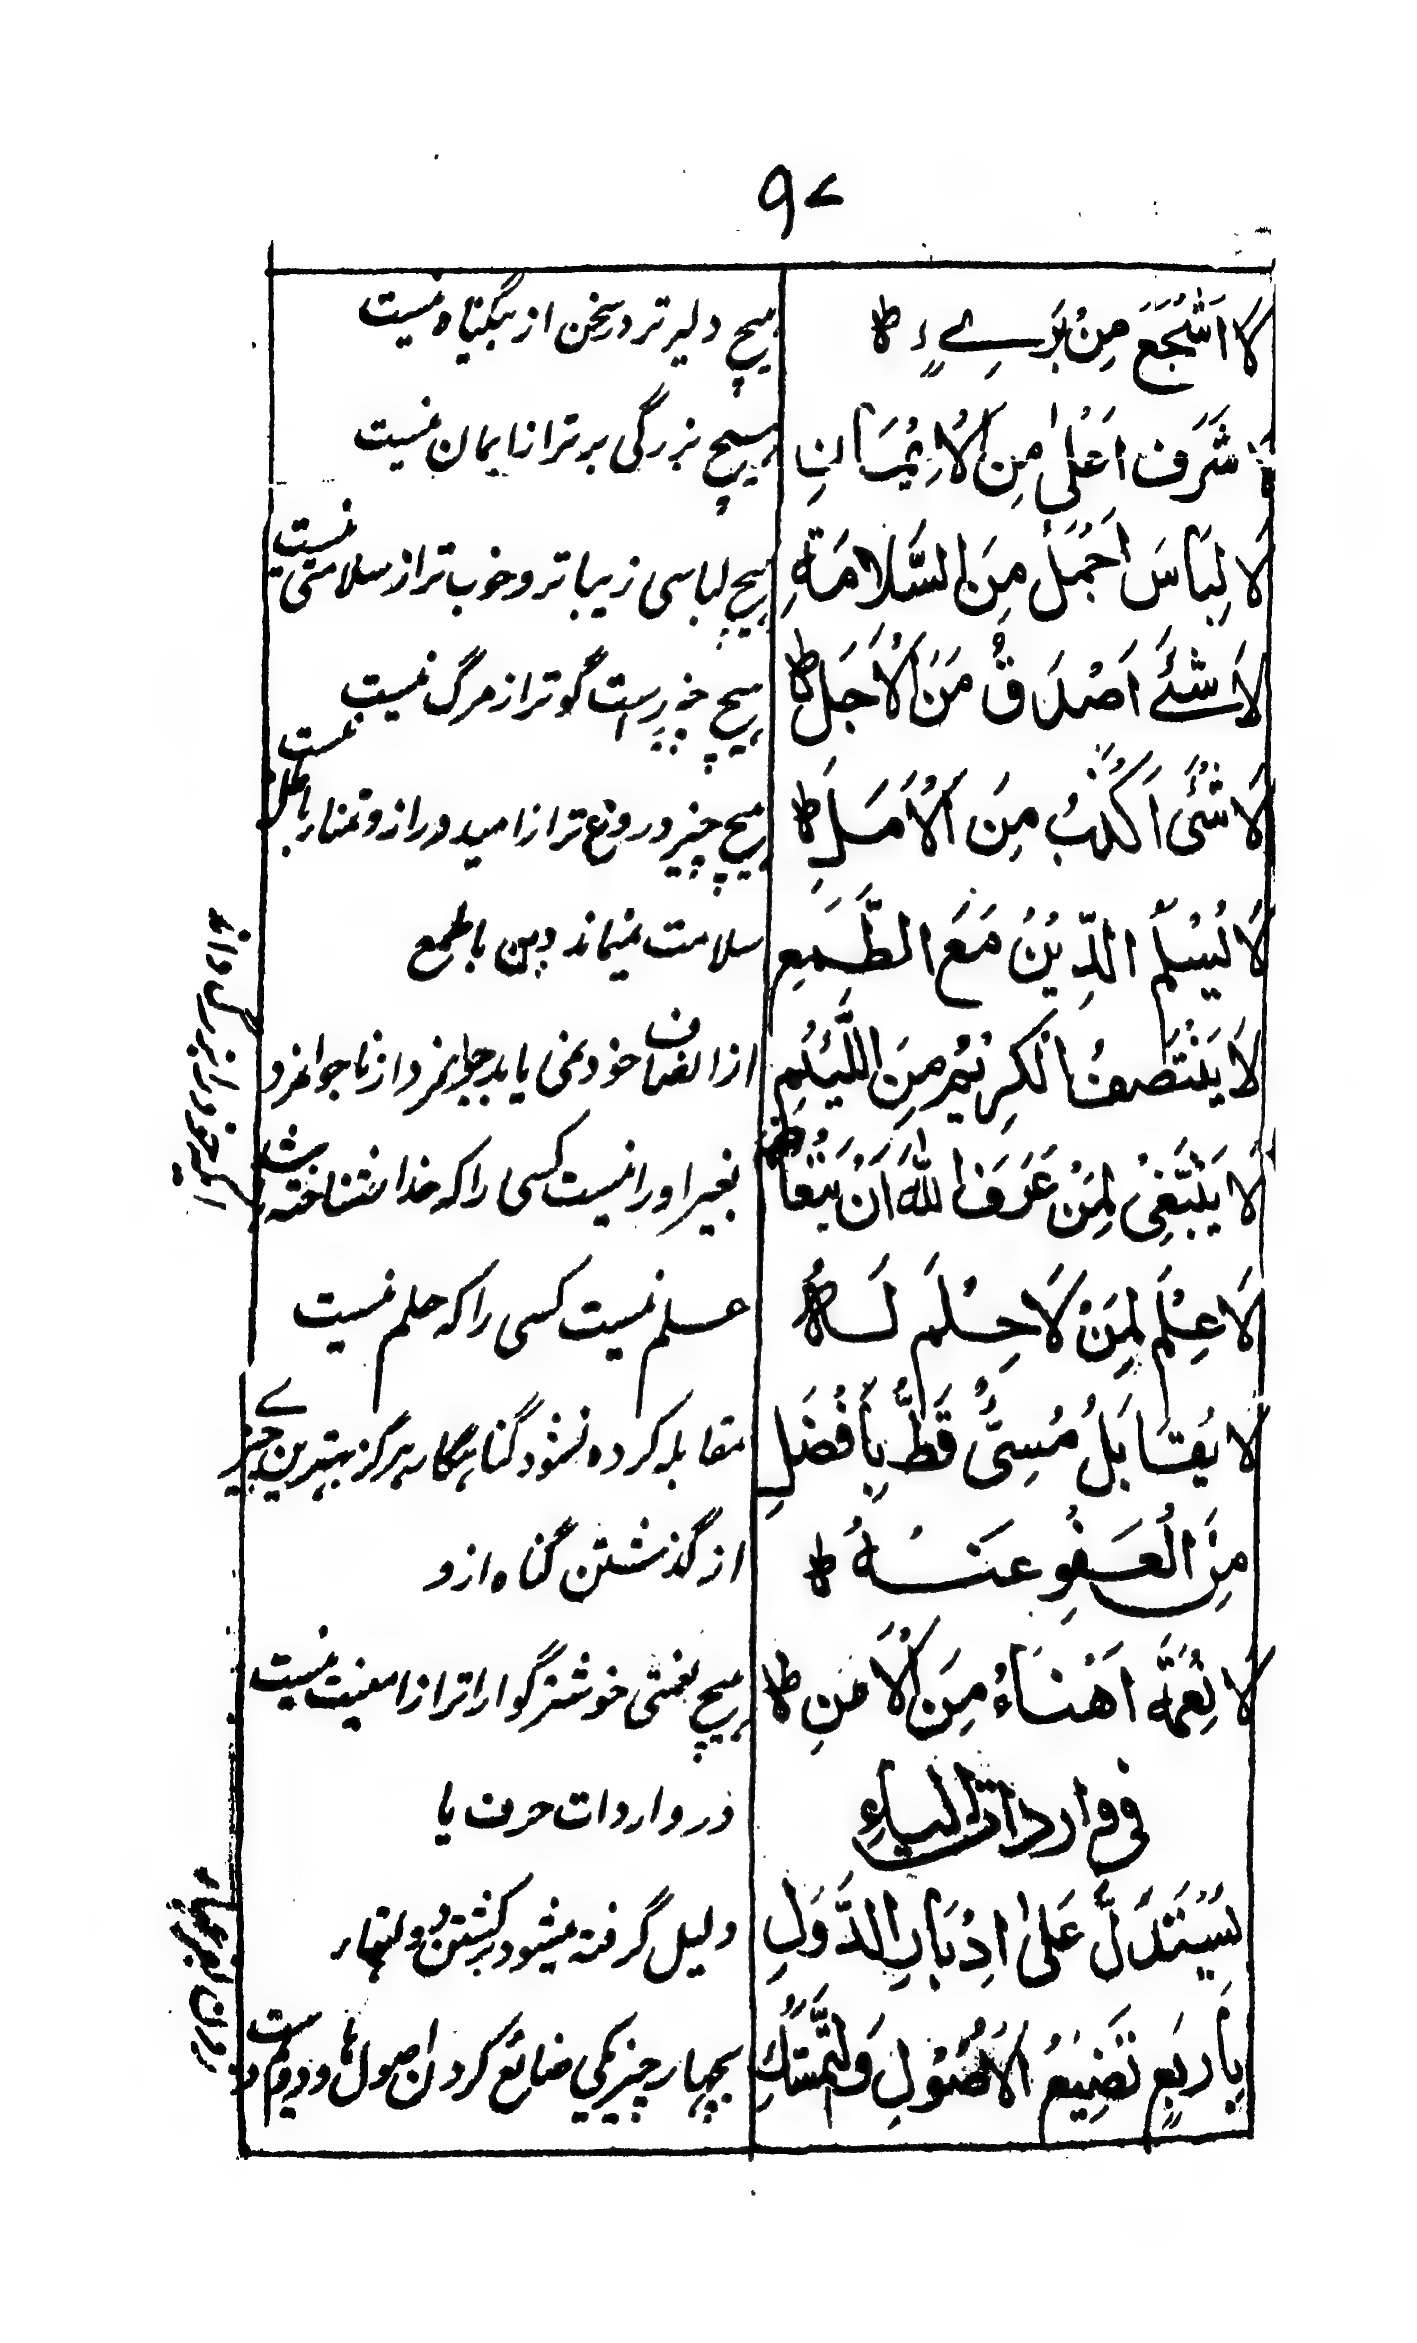 ۹۷
لَا اَشْجَعَ مِنْ بَرِیءٍ ط هیچ دلیر تر در سخن از بیگناه نیست
لَا شَرَف اَعْلٰی مِنَ الْاِیْمَانِ هیچ بزرگی برتر از ایمان نیست
لَا لِبَاسَ اَجْمَلُ مِنَ السَّلَامَةِ هیچ لباسی زیبا تر و خوب تر از سلامتی نیست
لَا شَیْءَ اَصْدَقُ مَنَ الْاَجَلِ ط هیچ چیز راست گو تر از مرگ نیست
لَا شَیْءَ اَکْذَبُ مِنَ الْاَمَلِ ط هیچ چیز دروغ تر از امید دراز و تمنا باطل نیست
لَا یُسْلَمُ الدِّیْنُ مَعَ الطَّمَعِ سلامت نمیماند دین با طمع
لَا یَنْتَصِفُ الْکَرِیْمُ مِنَ اللَّئِیْمِ از انصاف خود نمی یابد جوانمرد از ناجوانمرد
لَا یَنْبَغِیْ لِمَنْ عَرَفَ اللّٰهَ اَنْ یَتَعَاظَمَ نغیر او را نیست کسی را که خدا شناخته باشد
اینکه خود را بزرگ داند
لَا عِلْمَ لِمَنْ لَا حِلْمَ لَهُ ط علم نیست کسی را که حلم نیست
لَا یُقَابَلُ مُسِیءٌ قَطُّ بِاَفْضَلِ مقابله کرده نشود گناهگار هرگز بهترین چیزے
مِنَ الْعَفْوِ عَنْهُ ط از گذشتن گناه ازو
لَا نِعْمَةَ اَهْنَاءُ مِنَ الْاَمْنِ ط هیچ نعمتی خوشتر گوارا تر از امنیت نیست
فی واردات الیاءِ در واردات حرف یا
یُسْتَدَلُّ عَلٰی اِدْبَارِ الدُّوَلِ دلیل گرفته میشود برگشتن دولتها
بِاَرْبَعٍ تَضْیِیْعُ الْاُصُوْلِ وَالتَّمَسُّكِ بچهار چیز یکی ضائع کردن اصول ها و دوم دست